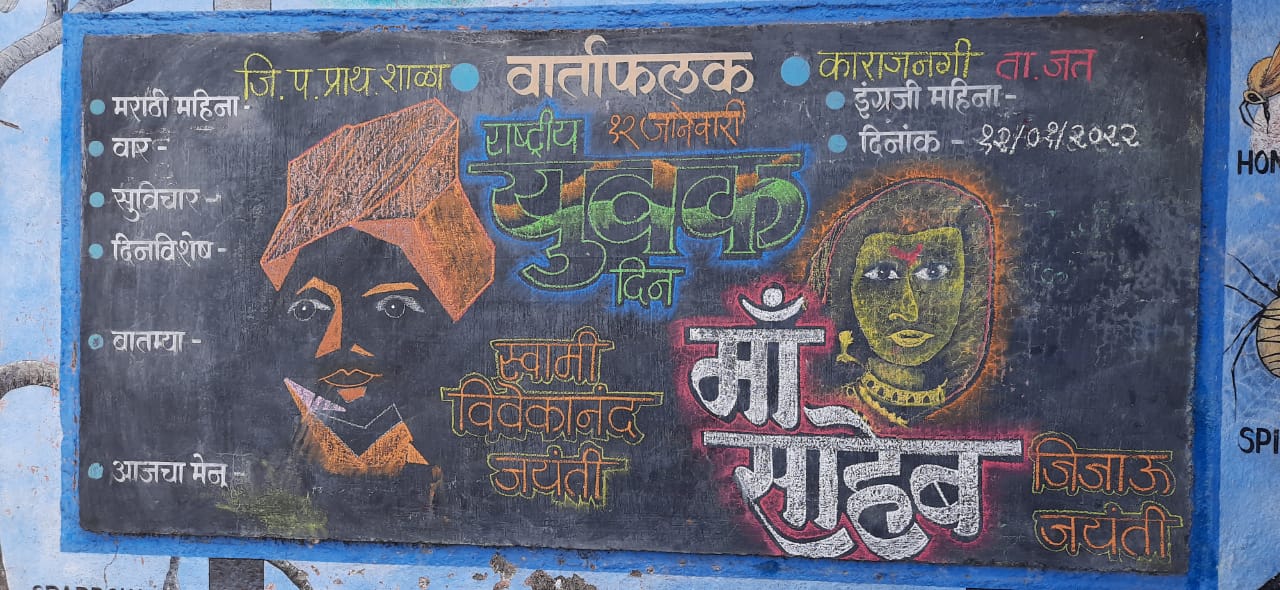 जि. प. प्राथ. शाळा वार्ताफलक काराजनगी ता. जत
मराठी महिना -
वार -
सुविचार -
दिनविशेष -
वातम्या -
आजचा मेनू -
राष्ट्रीय १२ जानेवारी
युवक
दिन
स्वामी
विवेकानंद
जयंती
इंग्रजी महिना -
दिनांक - १२/०१/२०२२
माँ
साहेब
जिजाऊ
जयंती
HON
SPI
SPARROW